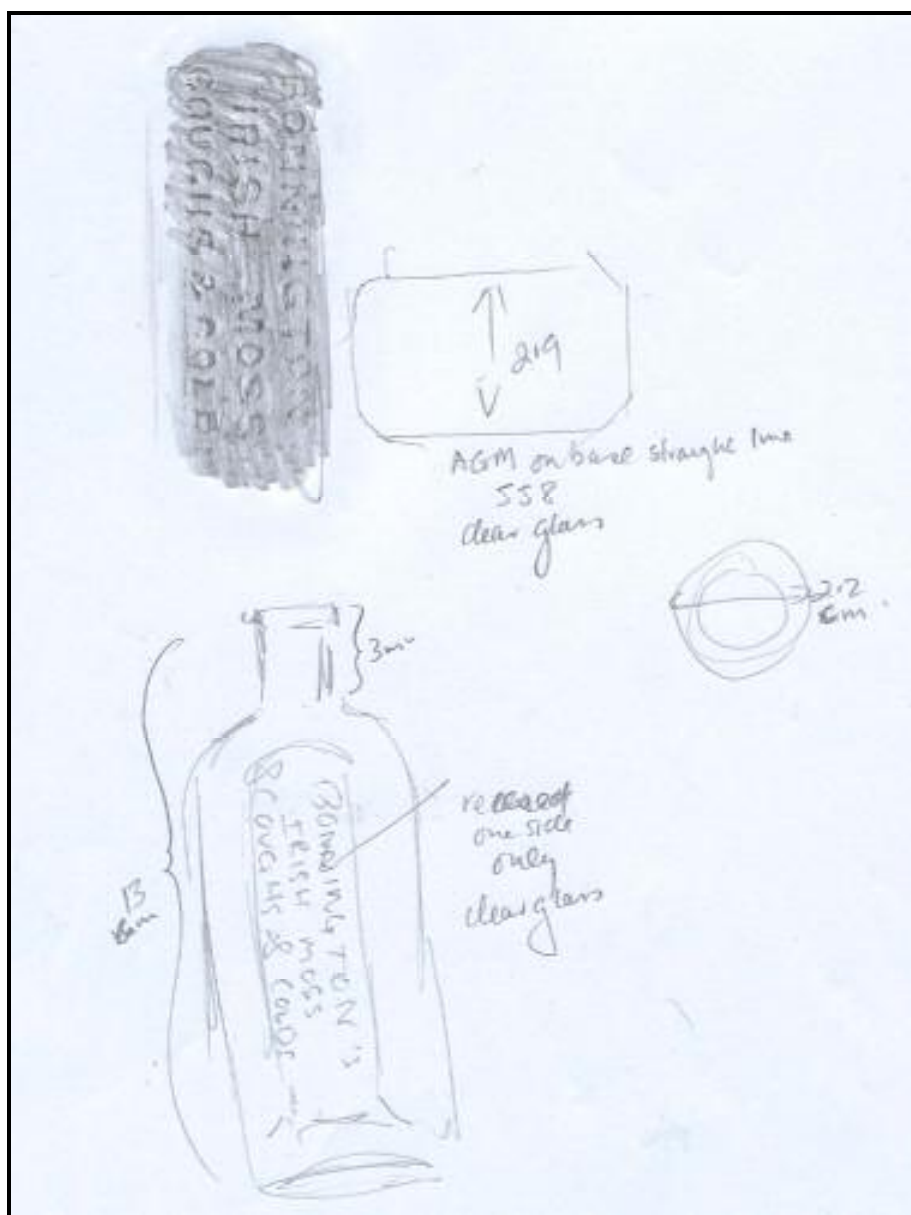 BONNINGTON
IRISH MOSS
COUGHS & COLD
2.9
AGM on base straight line
558
clear glass
2.2
cm.
3m
13
cm
BONNINGTON'S
IRISH MOSS
& COUGHS & COLDS
recessed
one side
only
clear glass